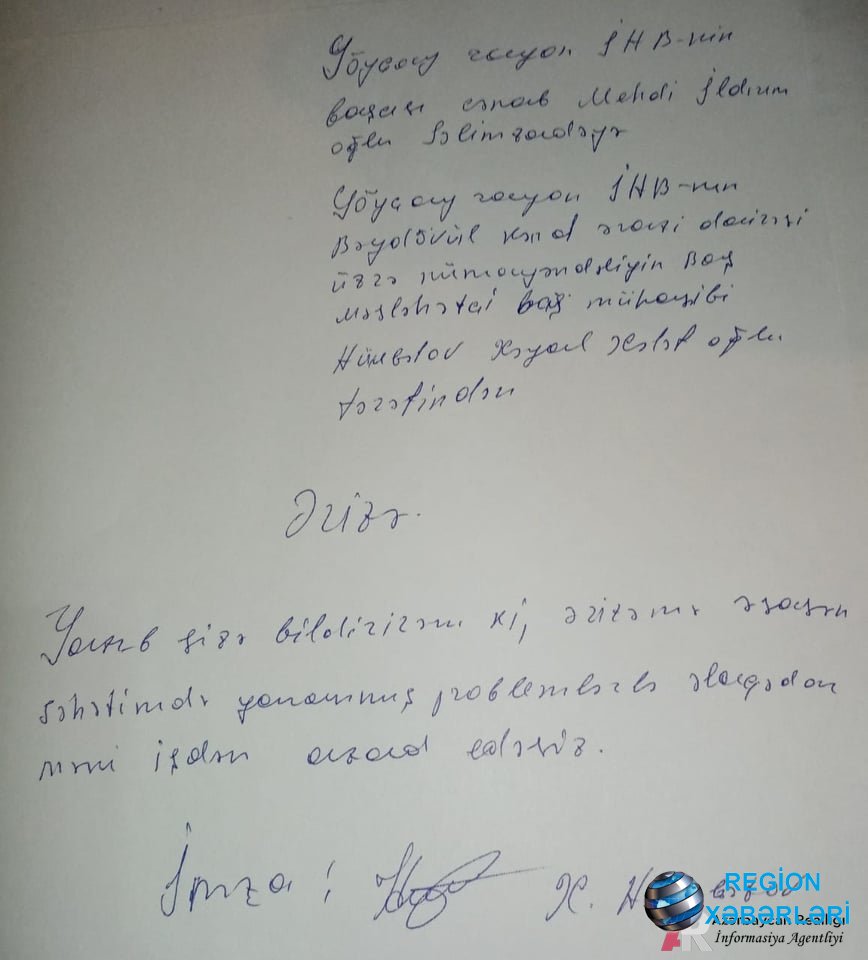 Göyçay rayon İHB-nin
başçısı cənab Mehdi İldırım
oğlu Səlimzadəyə
Göyçay rayon İHB-nin
Bəydövül kənd ərazi dairəsi
üzrə nümayəndəliyin Baş
Məsləhətçi baş mühasibi
Hümbətov Xəyal oğlu
tərəfindən
Ərizə.
Yazıb sizə bildirirəm ki, ərizəmə əsasən
səhətimdə yaranmış problemlərlə əlaqədar
məni işdən azad edəsiz.
İmza:
X.
REGİON
XƏBƏRLƏRİ
Azərbaycan Reallığı
İnformasiya Agentliyi